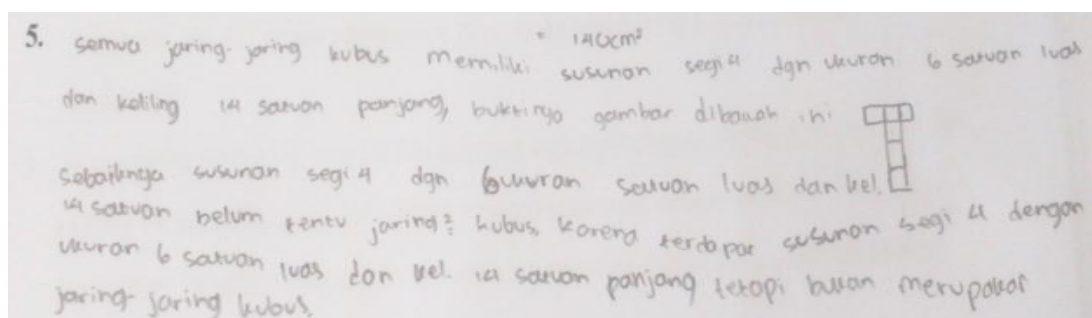 = 140cm²
5. semua jaring-jaring kubus memiliki susunan segi 4 dgn ukuran 6 satuan luas
dan keliling 14 satuan panjang, buktinya gambar dibawah ini
sebaiknya susunan segi 4 dgn 6 ukuran satuan luas dan kel.
14 satuan belum tentu jaring² kubus, karena terdapat susunan segi 4 dengan
ukuran 6 satuan luas dan kel. 14 satuan panjang tetapi bukan merupakan
jaring-jaring kubus.